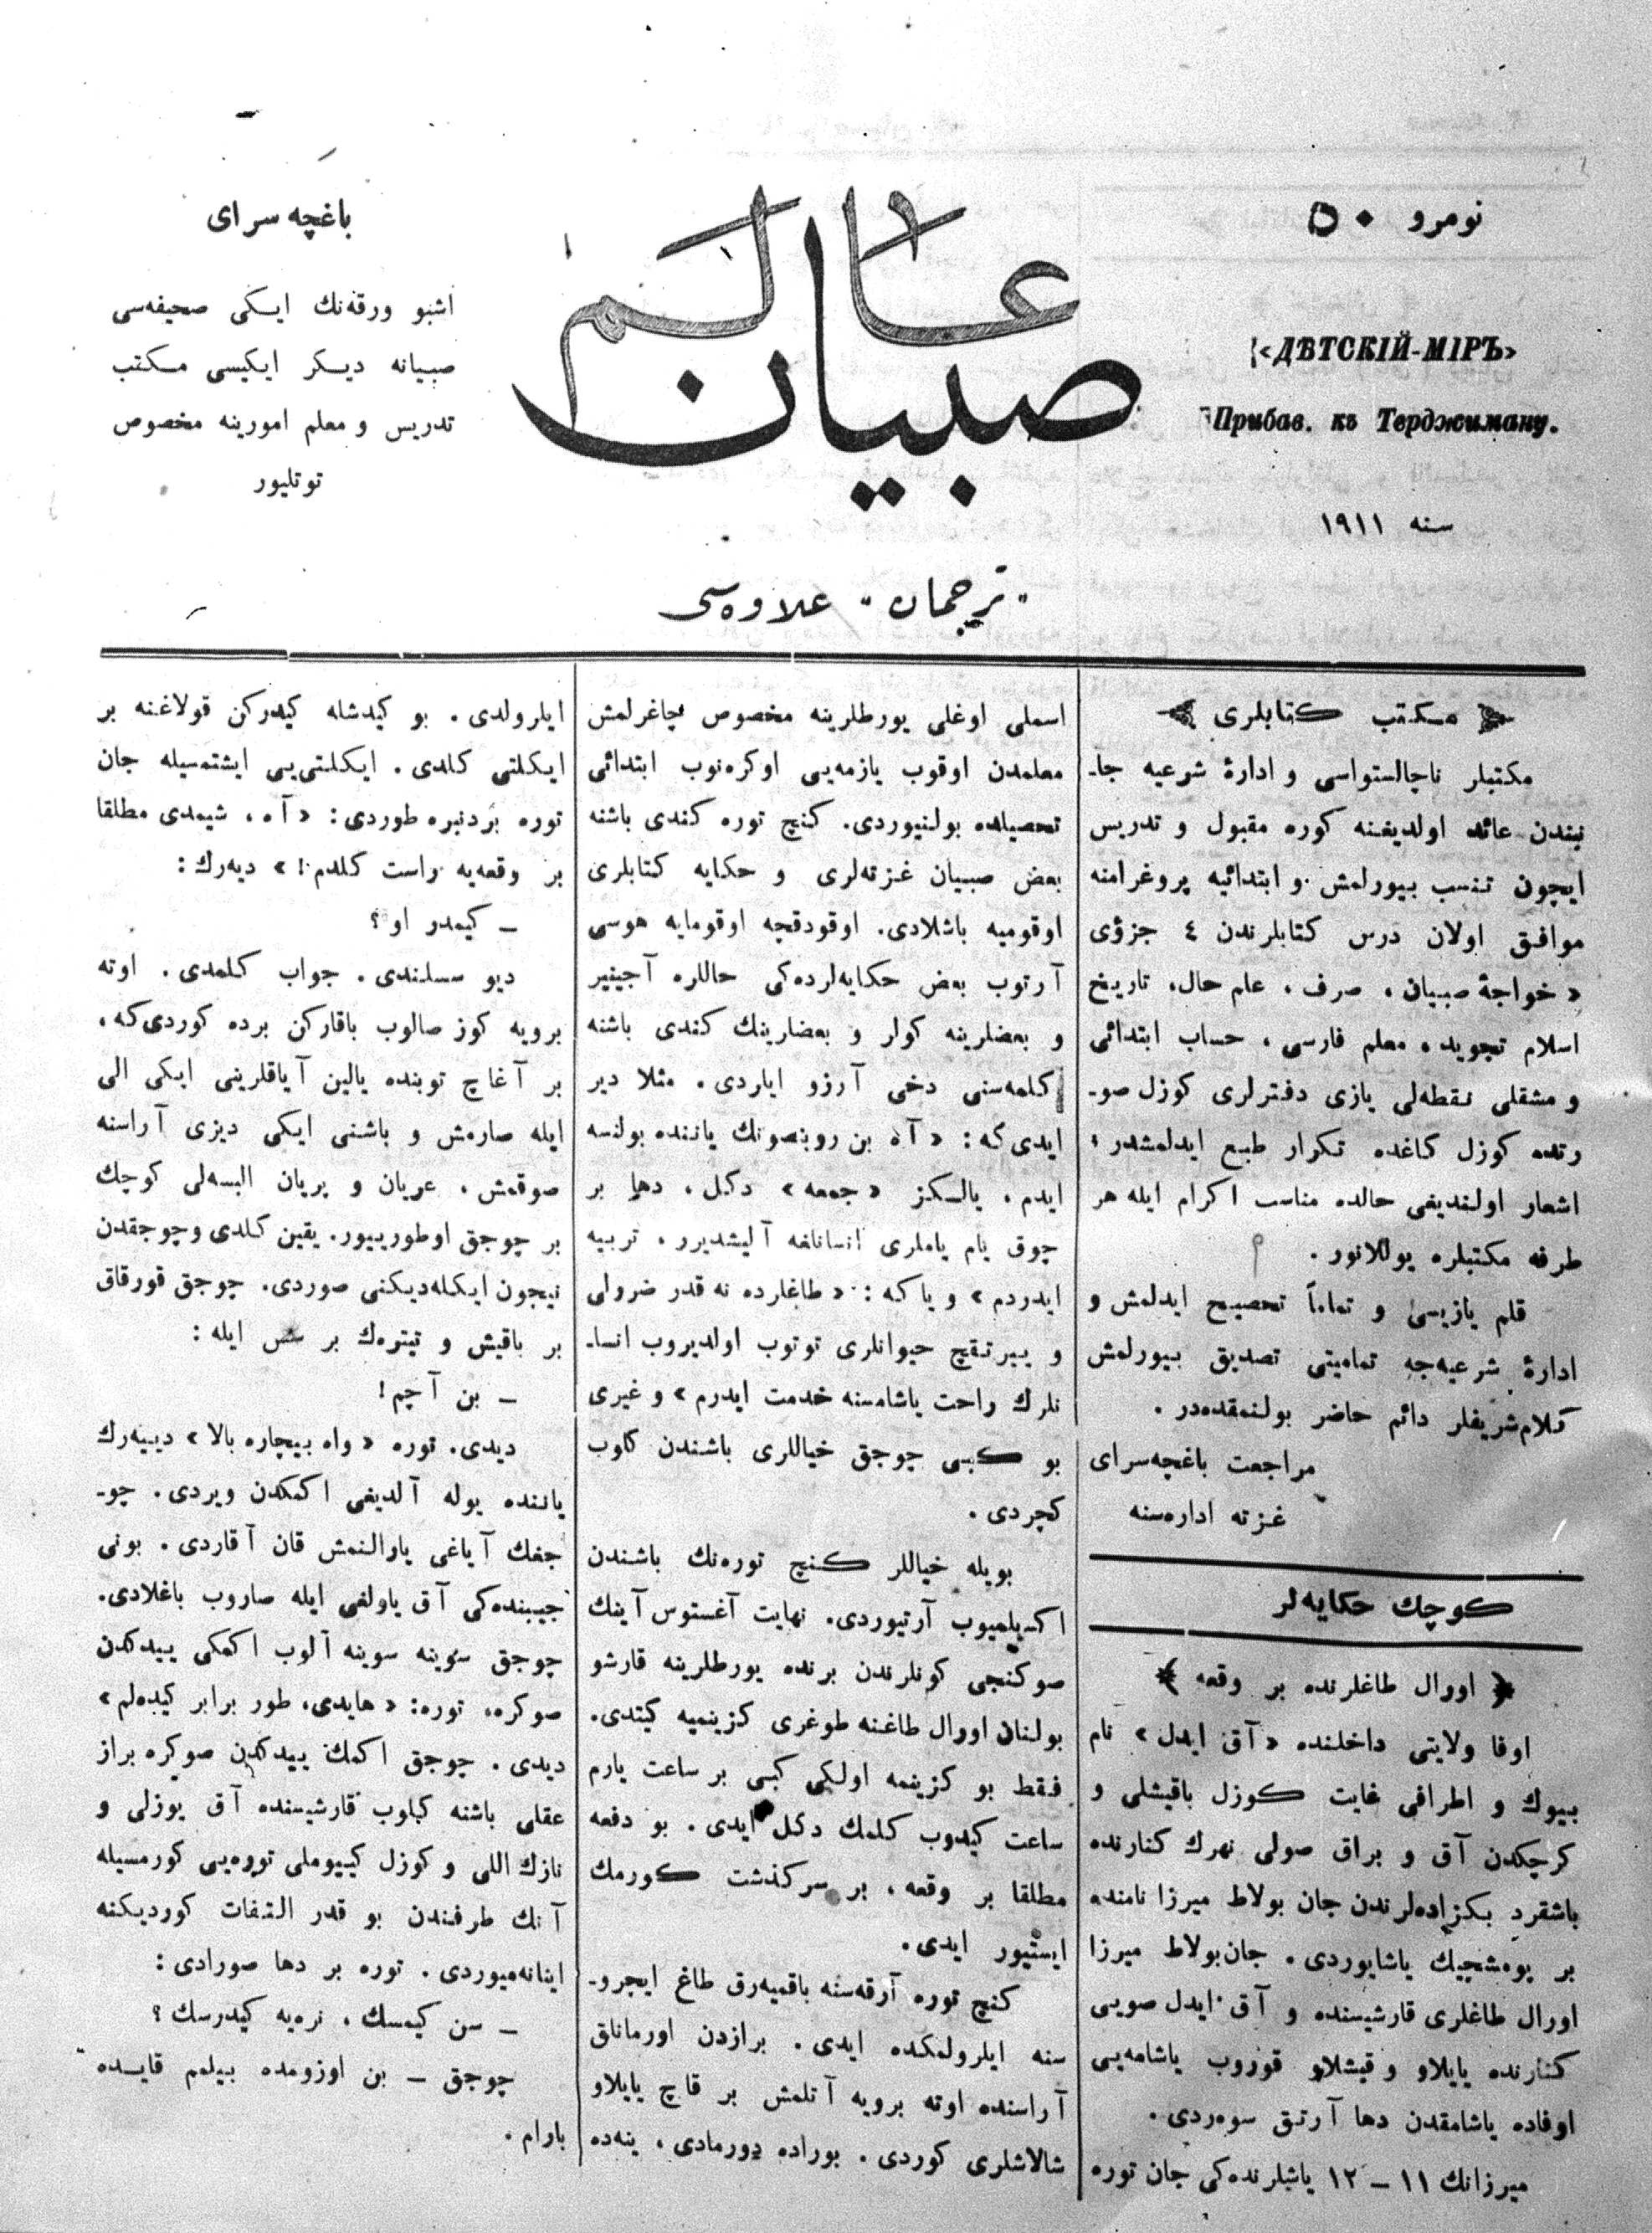 نومرو ٥٠
«ДѢТСКІЙ-МІРЪ»
Прибав. къ Терджиману.
سنه ١٩١١
عالم
صبيان
„ ترجمان “ علاوه‌سی
باغچه سرای
اشبو ورقه‌نك ایکی صحیفه‌سی
صبیانه دیکر ایکیسی مکتب
تدریس و معلم امورینه مخصوص
توتلیور
مکتب کتابلری
مکتبلر ناچالستواسی و ادارهٔ شرعیه جا-
نبندن عائد اولدیغنه کوره مقبول و تدریس
ایچون تنسب بیورلمش و ابتدائیه پروغرامنه
موافق اولان درس کتابلرندن ٤ جزؤی
« خواجهٔ صبیان ، صرف ، علم حال، تاریخ
اسلام تجوید، معلم فارسی ، حساب ابتدائی
و مشقلی نقطه‌لی یازی دفترلری کوزل صو-
رتده کوزل کاغده تکرار طبع ایدلمشدر ؛
اشعار اولندیغی حالده مناسب اکرام ایله هر
طرفه مکتبلره یوللانور .
قلم یازیسی و تماماً تصحیح ایدلمش و
ادارهٔ شرعیه‌جه تمامیتی تصدیق بیورلمش
کلام‌شریفلر دائم حاضر بولنمقده‌در .
مراجعت باغچه‌سرای
غزته اداره‌سنه
کوچك حکایه‌لر
﴿ اورال طاغلرنده بر وقعه ﴾
اوفا ولایتی داخلنده « آق ایدل » نام
بیوك و اطرافی غایت کوزل باقیشلی و
کرچکدن آق و براق صولی نهرك کنارنده
باشقرد بکزاده‌لرندن جان بولاط میرزا نامنده
بر یومشچیك یاشایوردی . جان‌بولاط میرزا
اورال طاغلری قارشیسنده و آق ایدل صویی
کنارنده یایلاو و قیشلاو قوروب یاشامه‌یی
اوفاده یاشامقدن دها آرتق سوه‌ردی .
میرزانك ١١ – ١٢ یاشلرنده‌کی جان توره
اسملی اوغلی یورطلرینه مخصوص چاغرلمش
معلمدن اوقوب یازمه‌یی اوکره‌نوب ابتدائی
تحصیلده بولنیوردی. کنج توره کندی باشنه
بعض صبیان غزته‌لری و حکایه کتابلری
اوقومیه باشلادی. اوقودقچه اوقومایه هوسی
آرتوب بعض حکایه‌لرده‌کی حاللره آجینیر
و بعضلرینه کولر و بعضارینك کندی باشنه
کلمه‌سنی دخی آرزو ایلردی . مثلا دیر
ایدی‌که : « آه بن روبنصونك یاننده بولنسه
ایدم ، یالکز « جمعه » دکل، دها بر
چوق یام یاملری انسانلغه آلیشدیرر ، تربیه
ایدردم » و یا که : « طاغلرده نه قدر ضررلی
و ییرتقچ حیوانلری توتوب اولدیروب انسا-
نلرك راحت یاشامسنه خدمت ایدرم » و غیری
بو کبی چوجق خیاللری باشندن کلوب
کچردی .
بویله خیاللر کنج توره‌نك باشندن
اکسیلمیوب آرتیوردی. نهایت آغستوس آینك
صوکنجی کونلرندن برنده یورطلرینه قارشو
بولنان اورال طاغنه طوغری کزینمیه کیتدی.
فقط بو کزینمه اولکی کبی بر ساعت یارم
ساعت کیدوب کلمك دکل ایدی . بو دفعه
مطلقا بر وقعه ، بر سرکذشت کورمك
ایستیور ایدی.
کنج توره آرقه‌سنه باقمیه‌رق طاغ ایچرو-
سنه ایلرولمکده ایدی . برازدن اورمانلق
آراسنده اوته برویه آتلمش بر قاچ یایلاو
شالاشلری کوردی . بوراده دورمادی ، ینه‌ده
ایلرولدی . بو کیدشله کیدرکن قولاغنه بر
ایکلتی کلدی . ایکلتی‌یی ایشتمسیله جان
توره بردنبره طوردی : « آه ، شیمدی مطلقا
بر وقعه‌یه راست کلدم ! » دیه‌رك :
– کیمدر او ؟
دیو سسلندی . جواب کلمدی . اوته
برویه کوز صالوب باقارکن برده کوردی‌که،
بر آغاچ توبنده یالین آیاقلرینی ایکی الی
ایله صارمش و باشنی ایکی دیزی آراسنه
صوقمش ، عریان و بریان البسه‌لی کوچك
بر چوجق اوطورییور. یقین کلدی وچوجقدن
نیچون ایکله‌دیکنی صوردی. چوجق قورقاق
بر باقیش و تیتره‌ك بر سس ایله :
– بن آچم !
دیدی. توره « واه بیچاره بالا » دییه‌رك
یاننده یوله آلدیغی اکمکدن ویردی . چو-
جغك آیاغی یارالنمش قان آقاردی . بونی
جیبنده‌کی آق یاولغی ایله صاروب باغلادی.
چوجق سوینه سوینه آلوب اکمکی ییدکدن
صوکره، توره: « هایدی، طور برابر کیده‌لم »
دیدی . چوجق اکمك ییدکدن صوکره براز
عقلی باشنه کیلوب قارشیسنده آق یوزلی و
نازك اللی و کوزل کییوملی توره‌یی کورمسیله
آنك طرفندن بو قدر التفات کوردیکنه
اینانه‌میوردی . توره بر دها صورادی :
– سن کیمسك ، نره‌یه کیدرسك ؟
چوجق – بن اوزومده بیلمم قایده
بارام .